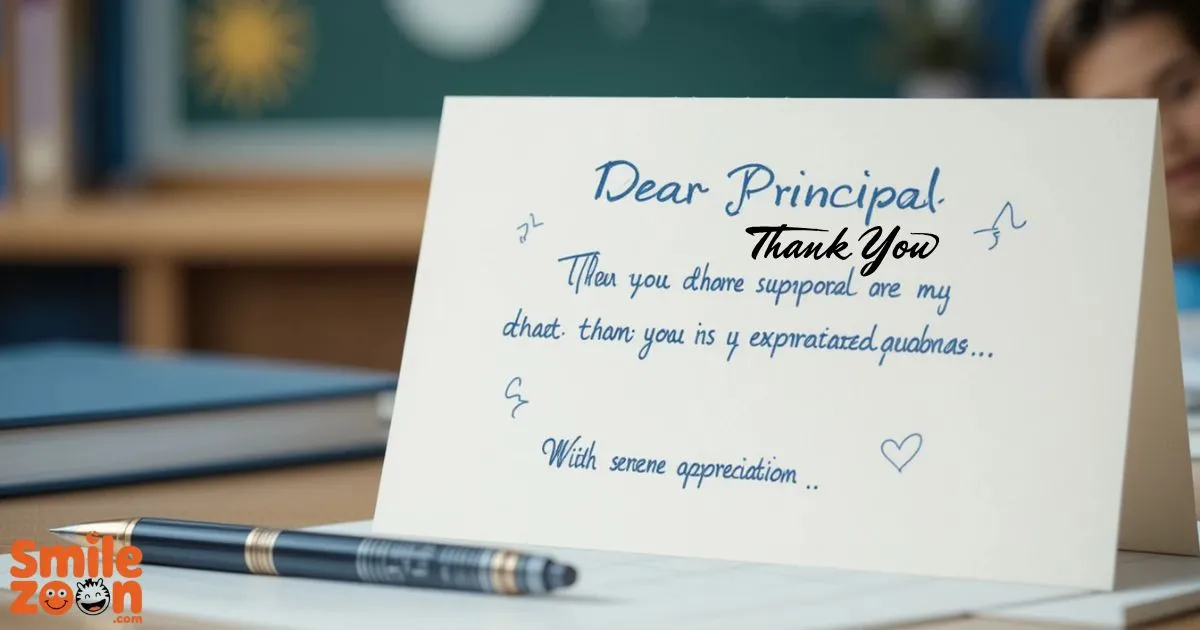 Dear Principal.
Thank You
Then you dhare supiporal are my
dhact. tham: you is y expiratared quabnas...
With serene appreciation ..
Smile
zoon
.com